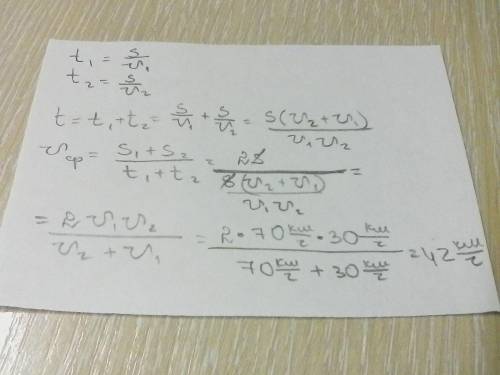 t₁ = s/v₁
t₂ = s/v₂
t = t₁ + t₂ = s/v₁ + s/v₂ = s(v₂ + v₁)/v₁v₂
vср = (s₁ + s₂)/(t₁ + t₂) = 2s/(s(v₂ + v₁)/v₁v₂) =
= 2v₁v₂/(v₂ + v₁) = (2 • 70 км/ч • 30 км/ч)/(70 км/ч + 30 км/ч) = 42 км/ч